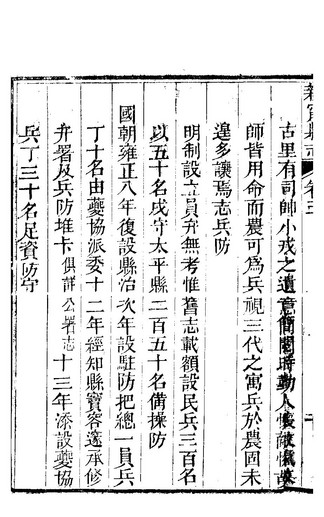 古里有司師小戎之遺意簡閱時勤人懷敵愾
師皆用命而農可為兵視三代之寓兵於農固未
遑多讓焉志兵防
明制設立員弁無考惟舊志載額設民兵三百名
以五十名戍守太平縣二百五十名備操防
國朝雍正八年復設縣治次年設駐防把總一員兵
丁十名由夔協派委十二年經知縣竇容邃承修
弁署及兵防堆卡俱詳公署志十三年添設夔協
兵丁三十名足資防守